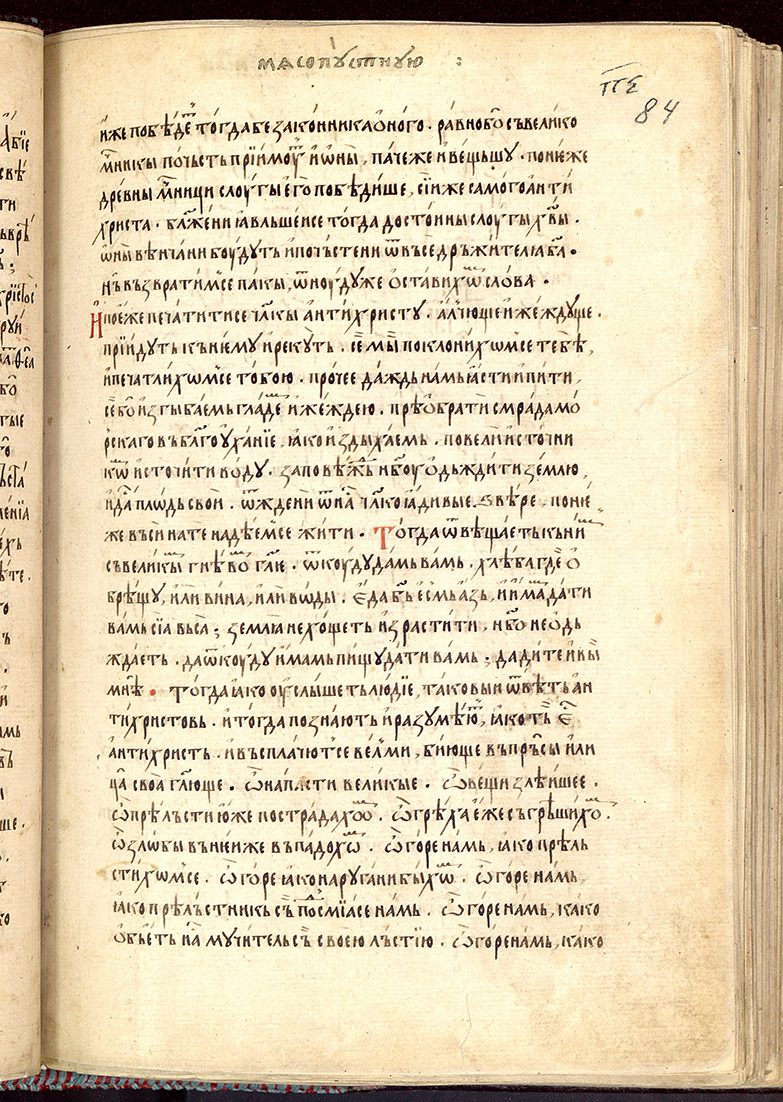 мѧсопꙋстнꙋю :
п҃є
84
и҆же побѣде́т тогда беꙁако́нника о҆ного . ра́вно бѡ съвели́ко
м҃нникы по́честь прїи́моут и҆ ѡ҆ны̀, па́чеже и҆ ве́щьшꙋ . пони́еже
дре́вны м҃нищи слоугы̀ є҆го̀ побѣ́дише, сїи́ же само́го а҆нти
христа . бл҃же́ни ꙗ҆вльшеи се тогда̀ досто́ины слоугы́ хв҃ы .
ѡ҆ны̀ вѣ́нчани боудꙋть и҆ по́чьстени ѿ въседръжи́телꙗ ба҃ .
нъ въꙁврати́м се па́кы, ѿноудꙋже ѡ҆ста́вихѡм сло́ва .
И҆ по є́же печати́ти се чл҃кы а҆нти́христꙋ . а҆́лчюще и҆ же́ждꙋще .
прїи́дꙋть къ не́мꙋ и҆ рекꙋть . се̑ мы̀ поклони́хѡм се тебѣ̀,
и҆ печатли́хѡм се то́бою . про́чее да́ждь на́мь ꙗ҆́сти и҆ пи́ти,
се̑ бо̀ и҆ꙁгыба́емь гла́де и҆ же́ждею . прѣѡ҆брати́ смра́да мо́
рскаго въ бл҃гоѹ҆ха́нїе, ꙗ҆́ко и҆ ꙁдыха́емь . повелѝ и҆сто́чни
кѡ и҆сточи́ти во́дꙋ . ꙁаповѣ́ждь нб҃оу ѡ҆дьжди́ти ꙁе́млю,
и҆ да̑ пло́дь сво́и . ѿжде́ни ѿ на̑ чл҃коꙗ҆ди́вые ѕвѣ́ре . пони́е
же въсѝ на тѐ наде́ем се жи́ти . Тогда ѿвѣща́еть къ ни
съ вели́кы гнѣ́во гл҃ѥ . ѿкоудꙋ да́мь ва́мь . хлѣ́ба где̑ ѡ҆
брѣ́щꙋ, и҆ли ви́на, и҆ли во́ды . є҆да̀ бь҃ є҆смь а҆ꙁь, и҆ и҆́ма да́ти
ва́мь сїа̀ вьса̀ ; ꙁемлꙗ̀ не хо́щеть и҆ꙁрасти́ти, нб҃о не ѡ҆дь
жда́еть . да ѿкоудꙋ и҆мамь пи́щꙋ да́ти ва́мь ; дади́те и҆ вы̀
мнѣ̀ . тогда̀ ꙗ҆́ко ѹ҆слы́шеть лю́дїе, такоⷡы́и ѿвѣ́ть а҆н
ти́христовь . и҆ тогда̀ поꙁна́ють и҆ раꙁꙋмѣ́ют, ꙗ҆́ко тъ є҆с
а҆нти́христь . и҆ въспла́чют се вел́ми, би́юще въ пръ́сы и҆ ли
ца̑ своа̀ гл҃юще . ѽ на́пасти вели́кые . ѽ ве́щи ꙁлѣ́ишее .
ѽ прѣ́льсти ю҆́же пострада́хоѡ . ѽ грѣ́ха є҆́же съгрѣши́хо .
ѽ ꙁло́бы въ не́и же въпа́дохѡ . ѽ го́ре на́мь, ꙗ҆́ко прѣ́ль
сти́хѡм се . ѽ го́ре ꙗ҆́ко нарꙋга́ни бы́хѡ . ѽ го́ре на́мь,
ꙗ҆́ко прѣлъ́стникь съ посмїа́се на́мь . ѽ го́ре на́мь, ка́ко
ѡ҆б́еть на̑ мꙋчи́тель съ свое́ю лъ́стїю . ѽ го́ре на́мь, ка́ко